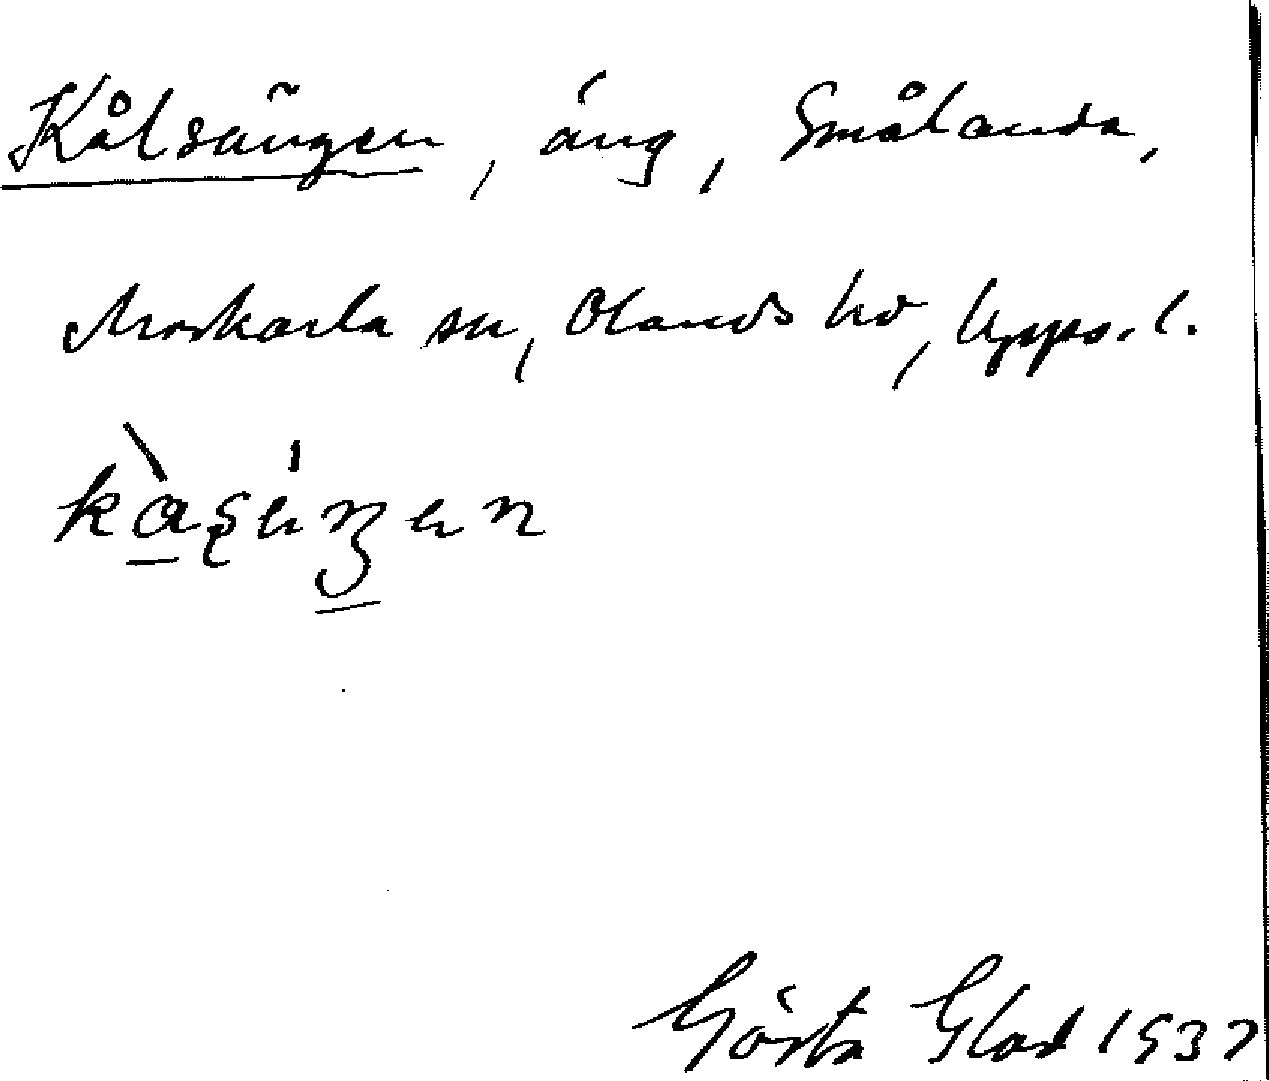 Kålsängen, äng, Smålanda,
Morkarla sn, Olands hd, Upps. l.
kàsénen
Gösta Glad 1937